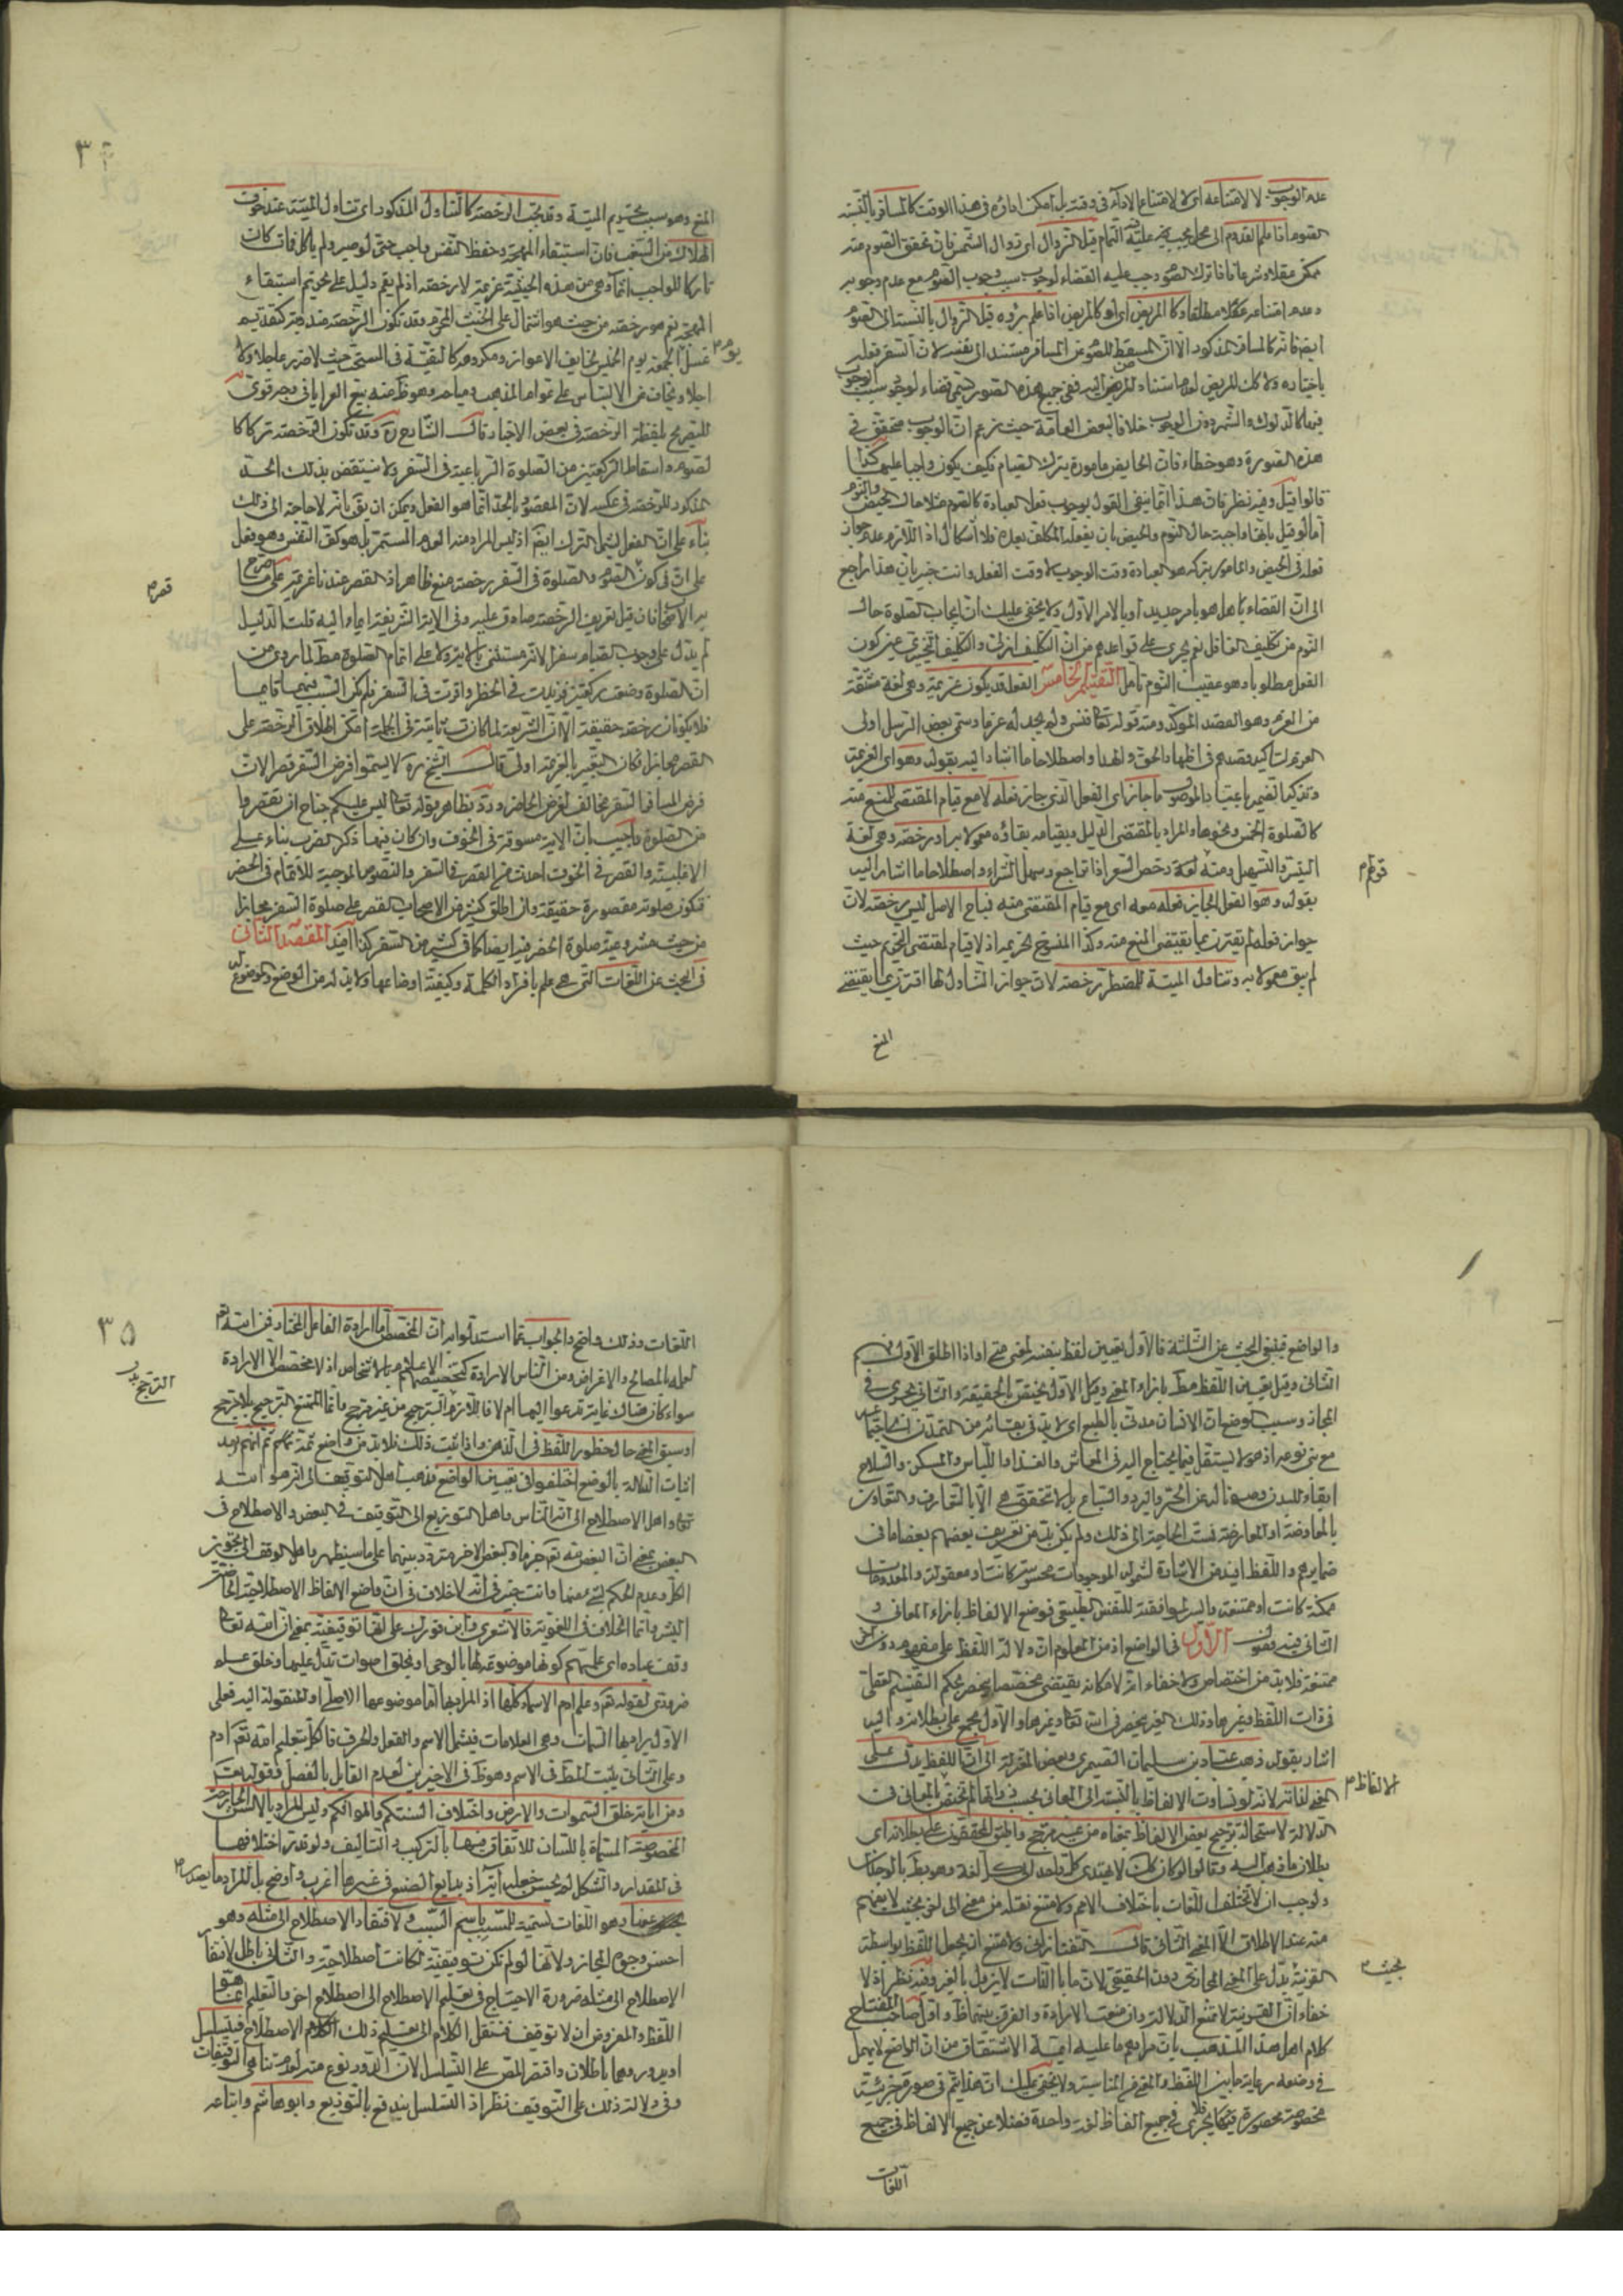 عدم الوجوب لا لامتناعه اى لا لامتناع الاداء فى وقته بل امكن اداؤه فى هذا الوقت كالمسافر بالنسبة
الصوم اذا علم القدوم الى محل يجب عليه التمام قبل الزوال اى زوال الشمس فان تحقق الصوم منه
ممكن عقلا وشرعا فاذا ترك الصوم وجب عليه القضاء لوجوب سبب وجوب الصوم مع عدم وجوبه
وعدم امتناعه عقلا مطلقا وكالمريض اى او كالمريض اذا علم برؤه قبل الزوال بالنسبة الى الصوم
ايضا فانه كالمسافر المذكور الا ان المسقط للصوم عن المسافر مستند الى نفسه لان السفر فعله
باختياره ولا كك المريض لعدم استناد المرض اليه ففى جميع هذه الصور يسمى قضاء لوجود سبب الوجوب
فيها كالدلوك والشهر دون الوجوب خلافا لبعض العامة حيث زعم ان الوجوب متحقق فى
هذه الصورة وهو خطاء فان الحايض مامورة بترك الصيام فكيف يكون واجبا عليها كذا
قالوا قيل وفيه نظر فان هذا انما ينفى القول بوجوب فعل العبادة كالصوم مثلا حال الحيض والنوم
اما لو قيل بانها واجبة حال النوم والحيض بان يفعله المكلف بعده فلا اشكال اذ اللازم عدم جواز
فعله فى الحيض والمامور بتركه هو العبادة وقت الوجوب لا وقت الفعل وانت خبير بان هذا راجع
الى ان القضاء هل هو بامر جديد او بالامر الاول ولا يخفى عليك ان ايجاب الصلوة حال
النوم من تكليف الغافل نعم يجرى على قواعدهم من ان التكليف ازلى والتكليف تنجيزى عند كون
الفعل مطلوبا وهو عقيب النوم تامل التقسيم الخامس الفعل قد يكون عزيمة وهى لغة مشتقة
من العزم وهو القصد المؤكد ومنه قوله تعالى فنسى ولم نجد له عزما وسمى بعض الرسل اولى
العزم لتاكيد قصدهم فى اظهار الحق والهدا واصطلاحا ما اشار اليه بقوله وهو اى العزيمة
وتذكير الضمير باعتبار الموصوف ما جاز اى الفعل الذى جاز فعله لا مع قيام المقتضى للمنع منه
كالصلوة الخمس ونحوها والمراد بالمقتضى الدليل وبقيامه بقاؤه معمولا به او رخصة وهى لغة
اليسر والتسهيل ومنه رخص السعر اذا تراجع وسهل الشراء واصطلاحا ما اشار اليه
قولهم
بقوله وهو الفعل الجايز فعله معه اى مع قيام المقتضى منه فباح الاصل ليس رخصة لان
جواز فعله لم يقترن بما يقتضى المنع منه وكذا المنسوخ تحريمه اذ لا قيام لمقتضى التحريم حيث
لم يبق معمولا به وتناول الميتة للمضطر رخصة لان جواز التناول لها اقترن بما يقتضى
المنع
المنع وهو سبب تحريم الميتة وقد تجب الرخصة كالتناول المذكور اى تناول الميتة عند خوف
الهلاك من السغب فان استبقاء المهجة وحفظ النفس واجب حتى لو صبر ولم ياكل فمات كان
تاركا للواجب اثما وهى من هذه الحيثية عزيمة لا رخصة اذ لم يقم دليل على تحريم استبقاء
المهجة نعم هو رخصة من حيث هو اشتمال على الخبث المحرم وقد تكون الرخصة مندوبة كتقديم
غسل الجمعة يوم الخميس لخايف الاعواز ومكروهة كالتقية فى المستحب حيث لا ضرر عاجلا ولا
يوم
اجلا ويخاف من الالتباس على عوام المذهب ومباحة وهو ظ منه بيع العرايا فى وجه قوى
للتصريح بلفظة الرخصة فى بعض الاخبار قال الشارح ره وقد تكون الرخصة تركا كا
لصوم واسقاط الركعتين من الصلوة الرباعية فى السفر ولا ينتقض بذلك الحد
المذكور للرخصة فى عكسه لان المقصود بالحد انما هو الفعل ويمكن ان يق بانه لا حاجة الى ذلك
بناء على ان الفعل يشمل الترك ايضا اذ ليس المراد منه العدم المستمر بل هو كف النفس وهو فعل
على ان فى كون الصوم والصلوة فى السفر رخصة منع ظاهر اذ القصر عندنا عزيمة على ما صرح
قصر
به الاصحاب فان قيل تعريف الرخصة صادق عليه وفى الاية الشريفة ايماء اليه قلت الدليل
لم يدل على وجوب الصيام سفرا لانه مستثنى بالاية ولا على اتمام الصلوة مط لما روى من
ان الصلوة وضعت ركعتين فزيدت فى الحضر واقرت فى السفر فلم يكن السبب فيهما قايما
فلا يكونان رخصة حقيقة الا ان الشريعة لما كانت ثابتة فى الجملة امكن اطلاق الرخصة على
القصر مجازا فكان التعبير بالعزيمة اولى قال الشيخ ره لا يسموا فرض السفر قصرا لان
فرض المسافر السفر مخالف لفرض الحاضر ورد بظاهر قوله تعالى ليس عليكم جناح ان تقصروا
من الصلوة واجيب بان الاية مسوقة فى الخوف وان كان فيها ذكر الضرب بناء على
الاغلبية والقصر فى الخوف احدث من القصر فى السفر والنصوص الموجبة للاتمام فى الحضر
فتكون صلوته مقصورة حقيقة وان اطلق كثير من الاصحاب القصر على صلوة السفر مجازا
من حيث مشروعية صلوة الحضر فيه ايضا كما فى كثير من السفر كذا افيد المقصد الثانى
فى البحث عن اللغات التى هى علم بافراد الكلمة وكيفية اوضاعها ولا بد له من الوضع والموضوع له
والواضع فينبغى البحث عن الثلثة فالاول تعيين لفظ بنفسه لمعنى متى اذا اطلق الاول فهم
الثانى وقيل تعيين اللفظ مط بازاء المعنى وقيل الاول يختص بالحقيقة والثانى يجرى فى
المجاز وسبب الوضع ان الانسان مدنى بالطبع اى لا بد فى بقائه من التمدن اى اجتماعه
مع بنى نوعه اذ هو لا يستقل فيما يحتاج اليه فى المعاش والغذا واللباس والمسكن والسلاح
ابقاء للبدن وصونا له عن الحر والبرد والسباع بل لا تتحقق هى الا بالتعارف والتعاون
بالمعاوضة او المعارضة فمست الحاجة الى ذلك ولم يكن بد من تعريف بعضهم بعضا ما فى
ضمايرهم واللفظ افيد من الاشارة لشموله الموجودات محسوسة كانت او معقولة والمعدومات
ممكنة كانت او ممتنعة وايسر لموافقته للنفس الطبيعى فوضع الالفاظ بازاء المعانى و
الثانى فيه فصول الاول فى الواضع اذ من المعلوم ان دلالة اللفظ على مفهوم دون اخر
ممتنعة فلا بد من اختصاص ولا خفاء انه لامكانه يقتضى مخصصا ينحصر بحكم التقسيم العقلى
فى ذات اللفظ وغيرها وذلك الغير ينحصر فى الله تعالى وغيرها والاول مجمع على بطلانه واليه
اشار بقوله ذهب عباد بن سليمان الصيمرى وبعض المعتزلة الى ان اللفظ يدل على
المعنى لذاته لانه لو تساوت الالفاظ بالنسبة الى المعانى بحسب ذواتها لم تختص بالمعانى فى
الالفاظ
الدلالة لاستحالة ترجيح بعض الالفاظ بمعناه من غير مرجح واتفق المحققون على بطلانه اى
بطلان ما ذهب اليه وقالوا لو كان كك لاهتدى كل واحد الى كل لغة وهو بط بالوجدان
ولوجب ان لا تختلف اللغات باختلاف الامم ولامتنع نقله من معنى الى اخر بحيث لا يفهم
منه عند الاطلاق الا المعنى الثانى قال التفتازانى ولامتنع ان يجعل اللفظ بواسطة
القرينة يدل على المعنى المجازى دون الحقيقى لان ما بالذات لا يزول بالغير وفيه نظر اذ لا
بحيث
خفاء ان القرينة لا تمنع الدلالة وان منعت الارادة والفرق بينهما ظ واول صاحب المفتاح
كلام اهل هذا المذهب بان مرادهم ما عليه ائمة الاشتقاق من ان الواضع لا يهمل
فى وضعه رعاية ما بين اللفظ والمعنى من المناسبة ولا يخفى عليك ان هذا يتم فى صورة جزئية
مخصوصة محصورة فلا يجرى فى جميع الفاظ لغة واحدة فضلا عن جميع الالفاظ فى جميع
اللغات
اللغات وذلك واضح والجواب عما استدلوا به ان المخصص اما ارادة الفاعل المختار فى الله تع
لعلمه بالمصالح والاغراض ومن الناس الارادة كتخصيصهم الاعلام بالاشخاص اذ لا مخصص الا الارادة
سواء كان هناك غاية تدعوا اليها ام لا فاللازم الترجيح من غير مرجح وانما الممتنع الترجح بلا مرجح
الترجح
او سبق المعنى حال خطور اللفظ فى الذهن واذا ثبت ذلك فلا بد من واضع ثمة ثم انهم بعد
اثبات الدلالة بالوضع اختلفوا فى تعيين الواضع فذهب اهل التوقيف الى انه هو الله
تعالى واهل الاصطلاح الى انه الناس واهل التوزيع الى التوقيف فى البعض والاصطلاح فى
البعض بمعنى ان البعض منه تع جزما والبعض الاخر متردد بينهما على ما سيظهر واهل الوقف الى تجويز
الكل وعدم الحكم بشئ منها وانت خبير فى انه لا خلاف فى ان واضع الالفاظ الاصطلاحية الخاصة
البشر وانما الخلاف فى اللغوية فالاشعرى وابن فورك على انها توقيفية بمعنى ان الله تعالى
وقف عباده اى علمهم كونها موضوعة لها بالوحى او بخلق اصوات تدل عليها وخلق علم
ضرورى لقوله تع وعلم ادم الاسماء كلها اذ المراد بها اما موضوعها الاصلى او المنقولة اليه فعلى
الاول يراد بها السمات وهى العلامات فيشمل الاسم والفعل والحرف فالكل بتعليم الله تع ادم
وعلى الثانى يثبت المط فى الاسم وهو ظ وفى الاخيرين لعدم القايل بالفصل ولقوله تع
ومن اياته خلق السموات والارض واختلاف السنتكم والوانكم وليس المراد بالالسن الجارحة
المخصوصة المسماة باللسان للاتفاق فيها بالتركيب والتاليف ولو قدر اختلافها
فى المقدار والشكل لم يحسن جعله اية اذ بدايع الصنع فى غيرها اغرب واوضح بل المراد ما يصدر
عنها وهو اللغات تسمية للمسبب باسم السبب ولا افتقار الاصطلاح الى مثله وهو
احسن وجوه المجاز ولانها لو لم تكن توقيفية لكانت اصطلاحية والتالى باطل لافتقار
الاصطلاح الى مثله ضرورة الاحتياج فى تعليم الاصطلاح الى اصطلاح اخر والتعليم انما هو
اللفظ والمفروض ان لا توقيف فننقل الكلام الى تعليم ذلك الاصطلاح فيتسلسل
او يدور وهما باطلان واقتصر المص على التسلسل لان الدور نوع منه لعدم تناهى التوقيفات
وفى دلالة ذلك على التوقيف نظر اذ التسلسل يندفع بالتوزيع وابو هاشم واتباعه